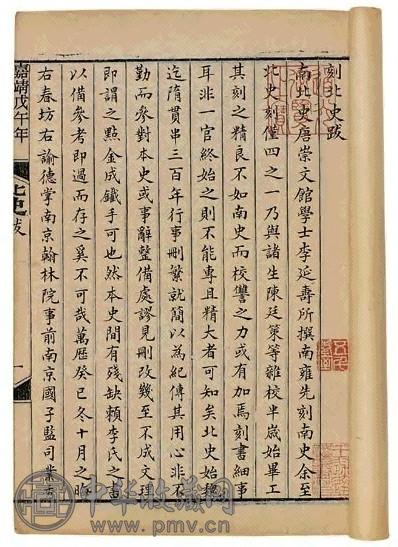 刻北史跋
南北史唐崇文館學士李延壽所撰南雍先刻南史余至
北史刻僅四之一乃與諸生陳廷策等雜校半歲始畢工
其刻之精良不如南史而校讐之力或有加焉刻書細事
耳非一官終始之則不能專且精大者可知矣北史始魏
迄隋貫串三百年行事刪繁就簡以為紀傳其用心非不
勤而參對本史或事辭整備處謬見刪改幾至不成文理
即謂之點金成鐵手可也然本史間有殘缺賴李氏之書
以備參考即過而存之奚不可哉萬歷癸巳冬十月之晦
右春坊右諭德掌南京翰林院事前南京國子監司業
嘉靖戊午年
北史跋
一
中华收藏网
www.pmv.cn